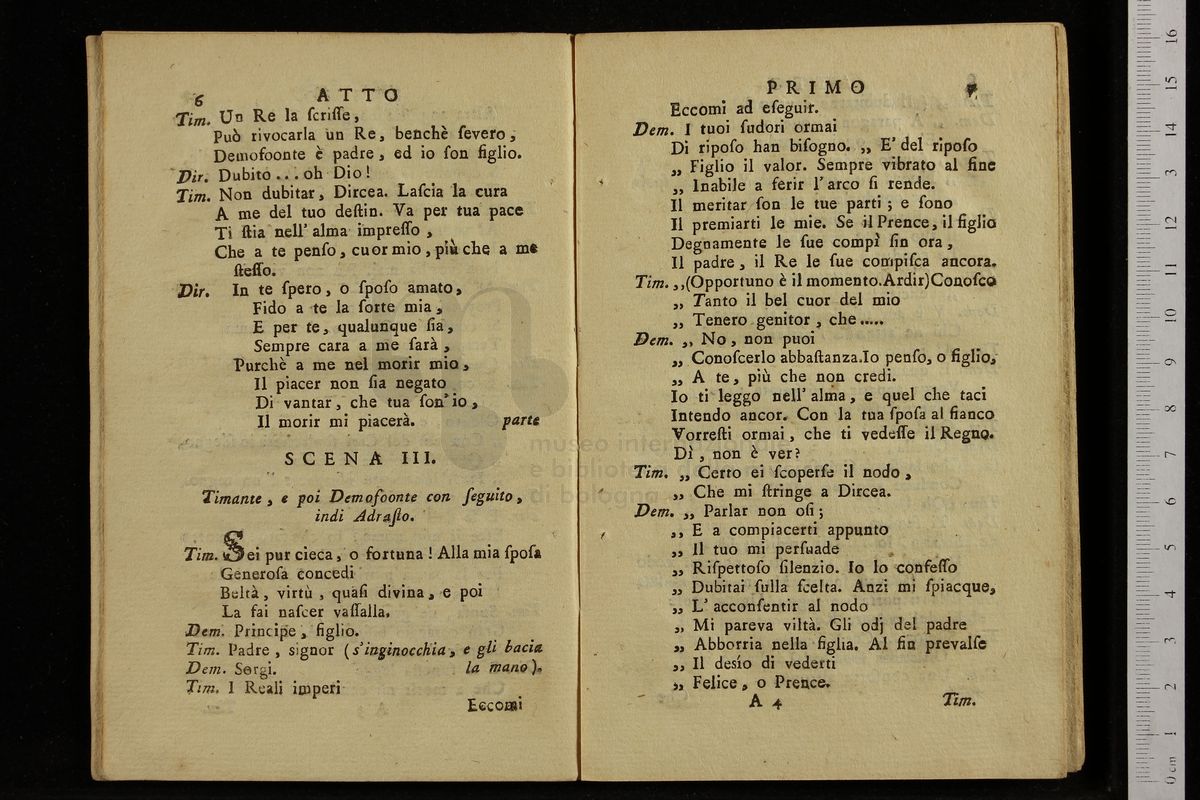 6 ATTO
Tim. Un Re la ſcriſſe,
Può rivocarla un Re, benchè ſevero,
Demofoonte è padre, ed io ſon figlio.
Dir. Dubito... oh Dio!
Tim. Non dubitar, Dircea. Laſcia la cura
A me del tuo deſtin. Va per tua pace
Ti ſtia nell' alma impreſſo,
Che a te penſo, cuor mio, più che a me
ſteſſo.
Dir. In te ſpero, o ſpoſo amato,
Fido a te la ſorte mia,
E per te, qualunque ſia,
Sempre cara a me ſarà,
Purchè a me nel morir mio,
Il piacer non ſia negato
Di vantar, che tua ſon' io,
Il morir mi piacerà. parte
SCENA III.
Timante, e poi Demofoonte con ſeguito,
indi Adraſto.
Tim. Sei pur cieca, o fortuna! Alla mia ſpoſa
Generoſa concedi
Beltà, virtù, quaſi divina, e poi
La fai naſcer vaſſalla.
Dem. Principe, figlio.
Tim. Padre, signor (s'inginocchia, e gli bacia
Dem. Sorgi. la mano).
Tim. I Reali imperi
Eccomi
PRIMO 7
Eccomi ad eſeguir.
Dem. I tuoi ſudori ormai
Di ripoſo han biſogno. ,, E' del ripoſo
,, Figlio il valor. Sempre vibrato al fine
,, Inabile a ferir l' arco ſi rende.
Il meritar ſon le tue parti; e ſono
Il premiarti le mie. Se il Prence, il figlio
Degnamente le ſue compì ſin ora,
Il padre, il Re le ſue compiſca ancora.
Tim. ,,(Opportuno è il momento. Ardir) Conoſco
,, Tanto il bel cuor del mio
,, Tenero genitor, che.....
Dem. ,, No, non puoi
,, Conoſcerlo abbaſtanza. Io penſo, o figlio,
,, A te, più che non credi.
Io ti leggo nell' alma, e quel che taci
Intendo ancor. Con la tua ſpoſa al fianco
Vorreſti ormai, che ti vedeſſe il Regno.
Dì, non è ver?
Tim. ,, Certo ei ſcoperſe il nodo,
,, Che mi ſtringe a Dircea.
Dem. ,, Parlar non oſi;
,, E a compiacerti appunto
,, Il tuo mi perſuade
,, Riſpettoſo ſilenzio. Io lo confeſſo
,, Dubitai ſulla ſcelta. Anzi mi ſpiacque,
,, L' acconſentir al nodo
,, Mi pareva viltà. Gli odj del padre
,, Abborria nella figlia. Al fin prevalſe
,, Il desío di vederti
,, Felice, o Prence.
A 4 Tim.
museo internazionale
e biblioteca della musica
di bologna